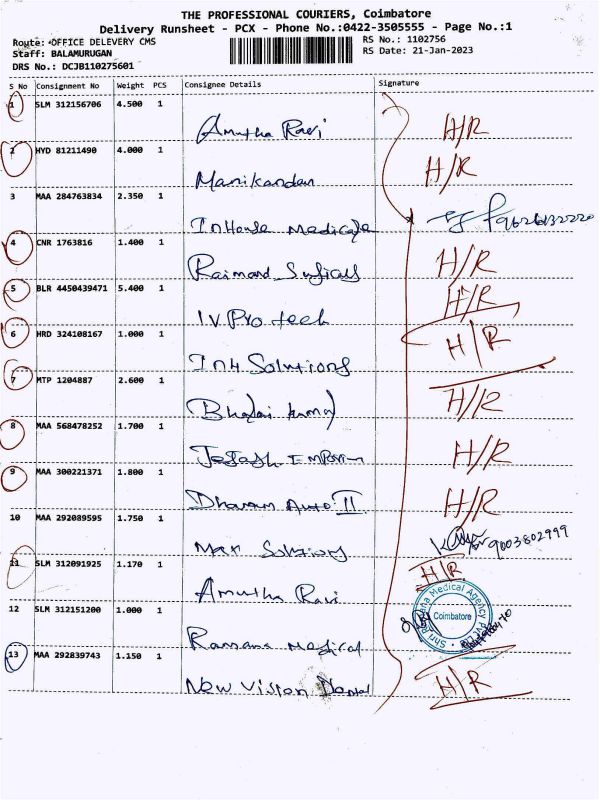 THE PROFESSIONAL COURIERS, Coimbatore
Delivery Runsheet - PCX - Phone No.:0422-3505555 - Page No.:1
Route: OFFICE DELEVERY CMS
Staff: BALAMURUGAN
DRS No.: DCJB110275601
RS No.: 1102756
RS Date: 21-Jan-2023
S No Consignment No Weight PCS Consignee Details Signature
1 SLM 312156706 4.500 1
Amutha Ravi H/R
2 HYD 81211490 4.000 1
Manikandan H/R
3 MAA 284763834 2.350 1
InHouse Medicaje
4 CNR 1763816 1.400 1
Raimand Surficals H/R
5 BLR 4450439471 5.400 1
IV Pro tech H/R
6 HRD 324108167 1.000 1
In4 Solutions H/R
7 MTP 1204887 2.600 1
H/R
8 MAA 568478252 1.700 1
H/R
9 MAA 300221371 1.800 1
Dharam Auto II H/R
10 MAA 292089595 1.750 1
Max Solutions 9003802999
11 SLM 312091925 1.170 1
Amutha Ravi H/R
12 SLM 312151200 1.000 1
Ramana Medical
Shri Ramana Medical Agency Pvt Ltd
Coimbatore
13 MAA 292839743 1.150 1
New Vision Dental H/R